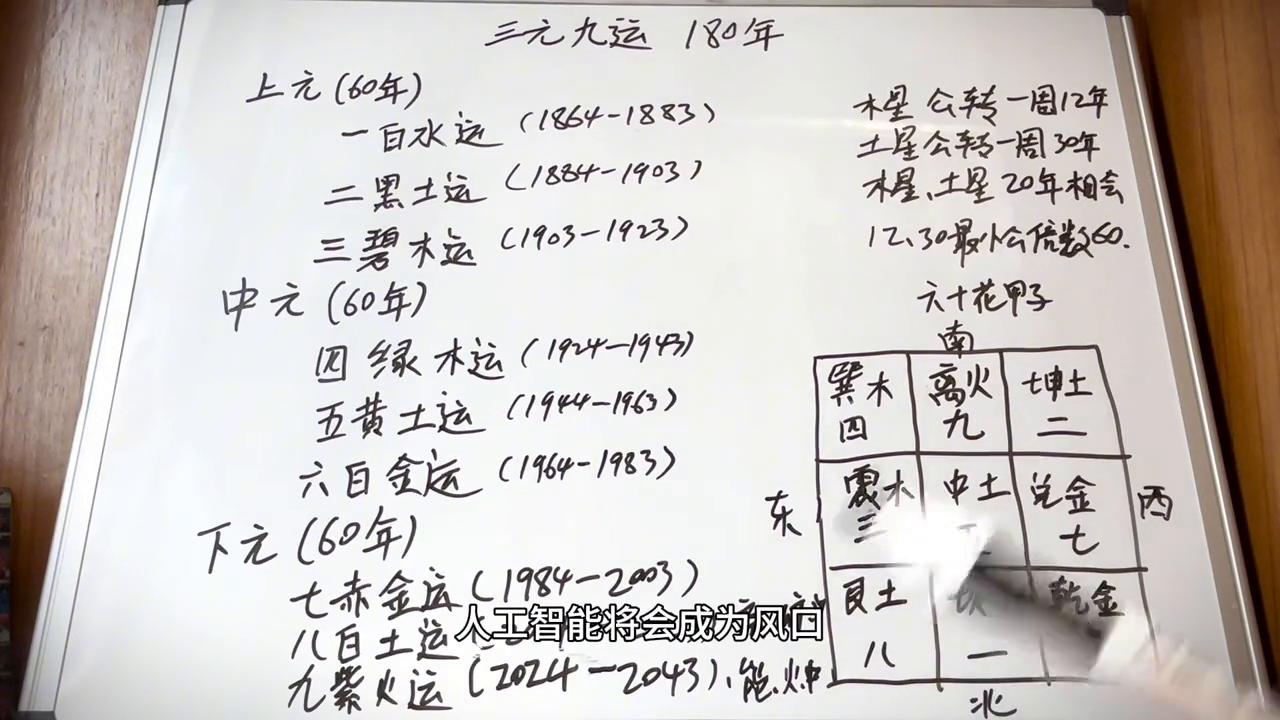 三元九运 180年
上元(60年)
一白水运 (1864-1883)
二黑土运 (1884-1903)
三碧木运 (1903-1923)
中元(60年)
四绿木运 (1924-1943)
五黄土运 (1944-1963)
六白金运 (1964-1983)
下元(60年)
七赤金运 (1984-2003)
八白土运
九紫火运 (2024-2043)、能、火中
木星公转一周12年
土星公转一周30年
木星、土星20年相会
12、30最小公倍数60.
六十花甲子
南
巽木 离火 坤土
四 九 二
东
震木 中土 兑金
三 七
西
艮土 乾金
八 一
北
人工智能将会成为风口